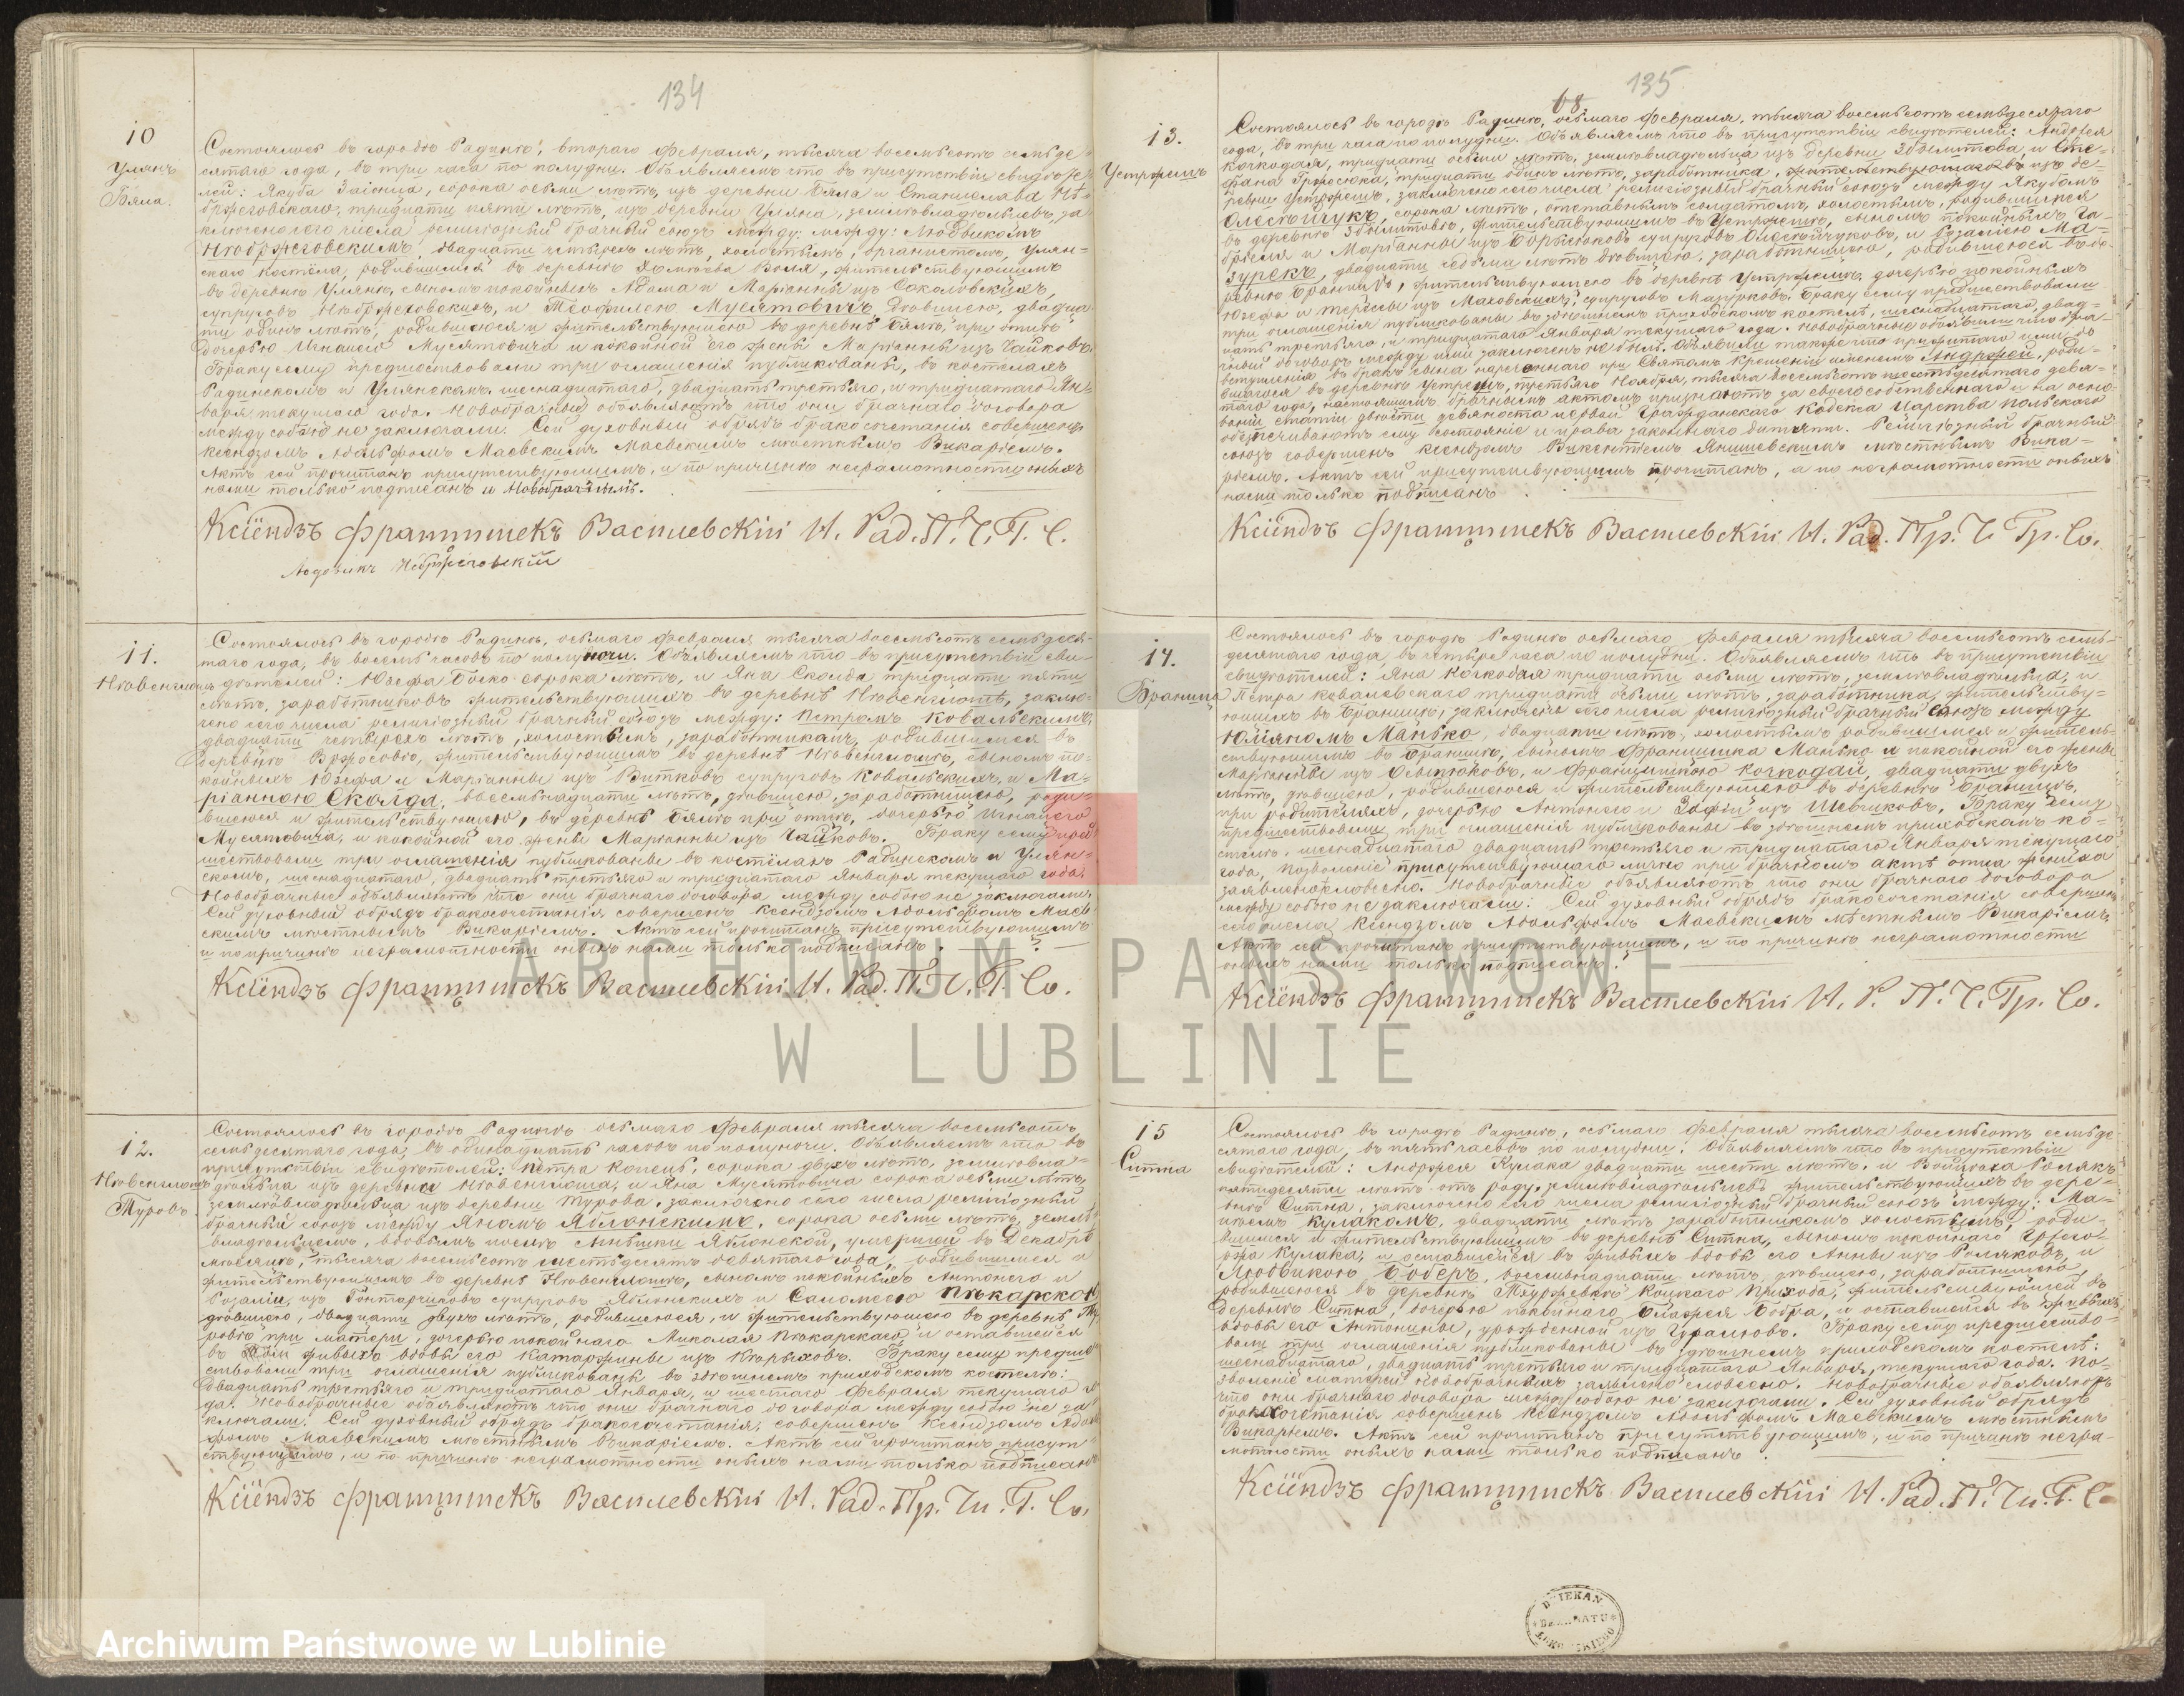 134
10
Улянъ
Бяла.
Состоялось въ городѣ Радинѣ, втораго Февраля, тысяча восемьсотъ семьде-
сятаго года, въ три часа по полудни. Объявляемъ что въ присутствіи свидѣте-
лей: Якуба Заіонца, сорока осьми лѣтъ, изъ деревни Бяла и Станислава Нѣ-
бржеговскаго, тридцати пяти лѣтъ, изъ деревни Уляна, земловладѣльцевъ, за-
ключено сего числа религіозный брачный союзъ между: между: Людвикомъ
Нѣбржеговскимъ, двадцати четырехъ лѣтъ, холостымъ, органистомъ, Улян-
скаго костёла, родившимся въ деревнѣ Воля, жительствующимъ
въ деревнѣ Улянѣ, сыномъ покойныхъ Адама и Маріанны изъ Соколовскихъ,
супруговъ Нѣбржеговскихъ, и Теофилею Мусятовичъ, дѣвицею, двадца-
ти одинъ лѣтъ, родившеюся и жительствующею въ деревнѣ Бялѣ, при отцѣ
дочерью Игнацего Мусятовича и покойной его жены Маріанны изъ Чайковъ.
Браку сему предшествовали три оглашенія публикованы, въ костелахъ
Радинскомъ и Улянскомъ, шеснадцатаго, двадцать третьяго, и тридцатаго Ян-
варя текущаго года. Новобрачные объявляютъ что они брачнаго договора
между собою не заключали. Сей духовный обрядъ бракосочетанія совершенъ
ксендзомъ Адольфомъ Маевскимъ мѣстнымъ Викаріемъ.
Актъ сей прочитанъ присутствующимъ, и по причинѣ неграмотности оныхъ
нами только подписанъ и Новобрачнымъ.
Ксіендзъ Францишекъ Василевскій Н. Рад. П. Ч. Г. С.
Людвикъ Нѣбржеговскій
11.
Нѣвенглошъ
Состоялось въ городѣ Радинѣ, осьмаго Февраля тысяча восемьсотъ семьдеся-
таго года, въ восемь часовъ по полуночи. Объявляемъ что въ присутствіи сви-
дѣтелей: Юзефа Боско сорока лѣтъ, и Яна Сколда тридцати пяти
лѣтъ, заработниковъ жительствующихъ въ деревнѣ Нѣвенглошѣ, заклю-
чено сего числа религіозный брачный союзъ между: Петромъ Ковальскимъ,
двадцати четырехъ лѣтъ, холостымъ, заработникомъ, родившимся въ
деревнѣ Вржосовѣ, жительствующимъ въ деревнѣ Нѣвенглошѣ, сыномъ по-
койныхъ Юзефа и Маріанны изъ Витковъ супруговъ Ковальскихъ, и Ма-
ріанною Сколда, восемьнадцати лѣтъ, дѣвицею, заработницею, роди-
вшеюся и жительствующею, въ деревнѣ Бялѣ при отцѣ, дочерью Игнацего
Мусятовича, и покойной его жены Маріанны изъ Чайковъ. Браку сему пред-
шествовали три оглашенія публикованы въ костёлахъ Радинскомъ и Улян-
скомъ, шеснадцатаго, двадцать третьяго и тридцатаго Января текущаго года.
Новобрачные объявляютъ что они брачнаго договора между собою не заключали.
Сей духовный обрядъ бракосочетанія совершенъ Ксендзомъ Адольфомъ Маев-
скимъ мѣстнымъ Викаріемъ. Актъ сей прочитанъ присутствующимъ
и по причинѣ неграмотности оныхъ нами только подписанъ.
Ксіендзъ Францишекъ Василевскій Н. Рад. П. Ч. Г. Со.
12.
Нѣвенглошъ
Туровъ.
Состоялось въ городѣ Радинѣ осьмаго Февраля тысяча восемьсотъ
семьдесятаго года, въ одинадцать часовъ по полуночи. Объявляемъ что въ
присутствіи свидѣтелей: Петра Конецъ, сорока двухъ лѣтъ, земловла-
дѣльца изъ деревни Нѣвенглоша, и Яна Мусятовича сорока осьми лѣтъ,
земловладѣльца изъ деревни Турова, заключено сего числа религіозный
брачный союзъ между Яномъ Яблонскимъ, сорока осьми лѣтъ, земло-
владѣльцемъ, вдовымъ послѣ Яблонской, умершей въ Декабрѣ
мѣсяцѣ, тысяча восемьсотъ шестьдесятъ девятаго года, родившимся и
жительствующимъ въ деревнѣ Нѣвенглошѣ, сыномъ покойныхъ Антонего и
Розаліи, изъ Гонтарчиковъ супруговъ Яблонскихъ и Саломеею Пѣкарскою
дѣвицею, двадцати двухъ лѣтъ, родившеюся, и жительствующею въ деревнѣ Ту-
ровѣ при матери, дочерью покойнаго Миколая Пѣкарскаго, и оставшейся
въ живыхъ вдовы его Катаржины изъ. Браку сему предше-
ствовали три оглашенія публикованы въ здѣшнемъ приходскомъ костелѣ:
двадцать третьяго и тридцатаго Января, и шестаго Февраля текущаго го-
да. Новобрачные объявляютъ что они брачнаго договора между собою не за-
ключали. Сей духовный обрядъ бракосочетанія, совершенъ Ксендзомъ Адоль-
фомъ Маевскимъ мѣстнымъ Викаріемъ. Актъ сей прочитанъ присут-
ствующимъ, и по причинѣ неграмотности оныхъ нами только подписанъ
Ксіендзъ Францишекъ Василевскій Н. Рад. Пр. Чи. Г. Со.
135
68
13.
Устржешъ
Состоялось въ городѣ Радинѣ, осьмаго Февраля, тысяча восемьсотъ семьдесятаго
года, въ три часа по полудни. Объявляемъ что въ присутствіи свидѣтелей: Андржея
Кочкодая, тридцати осьми лѣтъ, земловладѣльца изъ деревни Збулитова, и Сте-
фана Гржесюка, тридцати одинъ лѣтъ, заработника, жительствующаго въ де-
ревни Устржешъ, заключено сего числа религіозный брачный союзъ между Якубомъ
Олесейчукъ, сорока лѣтъ, отставнымъ солдатомъ, холостымъ, родившимся
въ деревнѣ Збулитовѣ, жительствующимъ въ Устржешѣ, сыномъ покойныхъ Га-
бріеля и Маріанны изъ Борысюковъ супруговъ Олесейчуковъ, и Розаліею Ма-
зурекъ, двадцати седьми лѣтъ дѣвицею, заработницею, родившеюся въ де-
ревнѣ Браница, жительствующею въ деревнѣ Устржешѣ, дочерью покойныхъ
Юзефа и Терессы изъ Маховскихъ, супруговъ Мазурковъ. Браку сему предшествовали
три оглашенія публикованы въ здѣшнемъ приходскомъ костелѣ, шеснадцатаго, двад-
цать третьяго, и тридцатаго Января текущаго года. Новобрачные объявили что бра-
чный договоръ между ими заключенъ не былъ. Объявили также что прижитаго ими до
вступленія въ бракъ сына нареченнаго при Святомъ Крещеніи именемъ Андржей, роди-
вшагося въ деревнѣ Устрешъ, третьяго Ноября, тысяча восемьсотъ шестьдесятаго девя-
таго года, настоящимъ брачнымъ актомъ признаютъ за своего собственнаго и на осно-
ваніи статьи двѣсти девяноста первой Гражданскаго Кодекса Царства Польскаго
обезпечиваютъ ему состояніе и права законнаго дитяти. Религіозный брачный
союзъ совершенъ ксендзомъ Викентіемъ Янишевскимъ мѣстнымъ Вика-
ріемъ. Актъ сей присутствующимъ прочитанъ, а по неграмотности оныхъ
нами только подписанъ
Ксіендзъ Францишекъ Василевскій Н. Рад. Пр. Ч. Гр. Со.
14.
Браница
Состоялось въ городѣ Радинѣ осьмаго Февраля тысяча восемьсотъ семь-
десятаго года, въ четыре часа по полудни. Объявляемъ что въ присутствіи
свидѣтелей: Яна Кочкодая тридцати осьми лѣтъ, земловладѣльца, и
Петра Ковалевскаго тридцати осьми лѣтъ, заработника, жительству-
ющихъ въ Браницѣ, заключенъ сего числа религіозный брачный союзъ между
Юліяномъ Манько, двадцати лѣтъ, холостымъ родившимся и житель-
ствующимъ въ Браницѣ, сыномъ Францишка Манько и покойной его жены
Маріанны изъ Осыпюковъ, и Францишкою Кочкодай, двадцати двухъ
лѣтъ, дѣвицею, родившеюся и жительствующею въ деревнѣ Браница,
при родителяхъ, дочерью Антонего и Зофіи изъ Шевчиковъ. Браку сему
предшествовали три оглашенія публикованы въ здѣшнемъ приходскомъ ко-
стелѣ, шеснадцатаго двадцать третьяго и тридцатаго Января текущаго
года, позволеніе присутствующаго лично при брачномъ актѣ отца жениха
заявлено словесно. Новобрачные объявляютъ что они брачнаго договора
между собою не заключали. Сей духовный обрядъ бракосочетанія совершенъ
сего числа Ксендзомъ Адольфомъ Маевскимъ мѣстнымъ Викаріемъ
Актъ сей прочитанъ присутствующимъ, и по причинѣ неграмотности
оныхъ нами только подписанъ.
Ксіендзъ Францишекъ Василевскій Н. Р. П. Ч. Гр. Со.
15
Ситна
Состоялось въ городѣ Радинѣ, осьмаго Февраля тысяча восемьсотъ семьде-
сятаго года, въ пять часовъ по полудни. Объявляемъ что въ присутствіи
свидѣтелей: Андржея Кулака двадцати шести лѣтъ, и Войцѣха Полякъ
пятидесяти лѣтъ отъ роду, земловладѣльцевъ жительствующихъ въ дере-
внѣ Ситна, заключено сего числа религіозный брачный союзъ между: Ма-
цѣемъ Кулакомъ, двадцати лѣтъ заработникомъ холостымъ, роди-
вшимся и жительствующимъ въ деревнѣ Ситна, сыномъ покойнаго Гржего-
ржа Кулака, и оставшейся въ живыхъ вдовы его Анны изъ Поляковъ, и
Людвикою Боберъ, восемьнадцати лѣтъ, дѣвицею, заработницею,
родившеюся въ деревнѣ Тхуржевкѣ Коцкаго прихода, жительствующей въ
деревнѣ Ситна, дочерью покойнаго Блажея Бобра, и оставшейся въ живыхъ
вдовы его Антонины, урожденной изъ. Браку сему предшество-
вали три оглашенія публикованы въ здѣшнемъ приходскомъ костелѣ:
шеснадцатаго, двадцать третьяго и тридцатаго Января, текущаго года. По-
зволеніе матерей новобрачныхъ заявлено словесно. Новобрачные объявляютъ
что они брачнаго договора между собою не заключали. Сей духовный обрядъ
бракосочетанія совершенъ Ксендзомъ Адольфомъ Маевскимъ мѣстнымъ
Викаріемъ. Актъ сей прочитанъ присутствующимъ, и по причинѣ негра-
мотности оныхъ нами только подписанъ.
Ксіендзъ Францишекъ Василевскій Н. Рад. П. Чи. Г. С.
DZIEKAN
ARCHIWUM PAŃSTWOWE
W LUBLINIE
Archiwum Państwowe w Lublinie